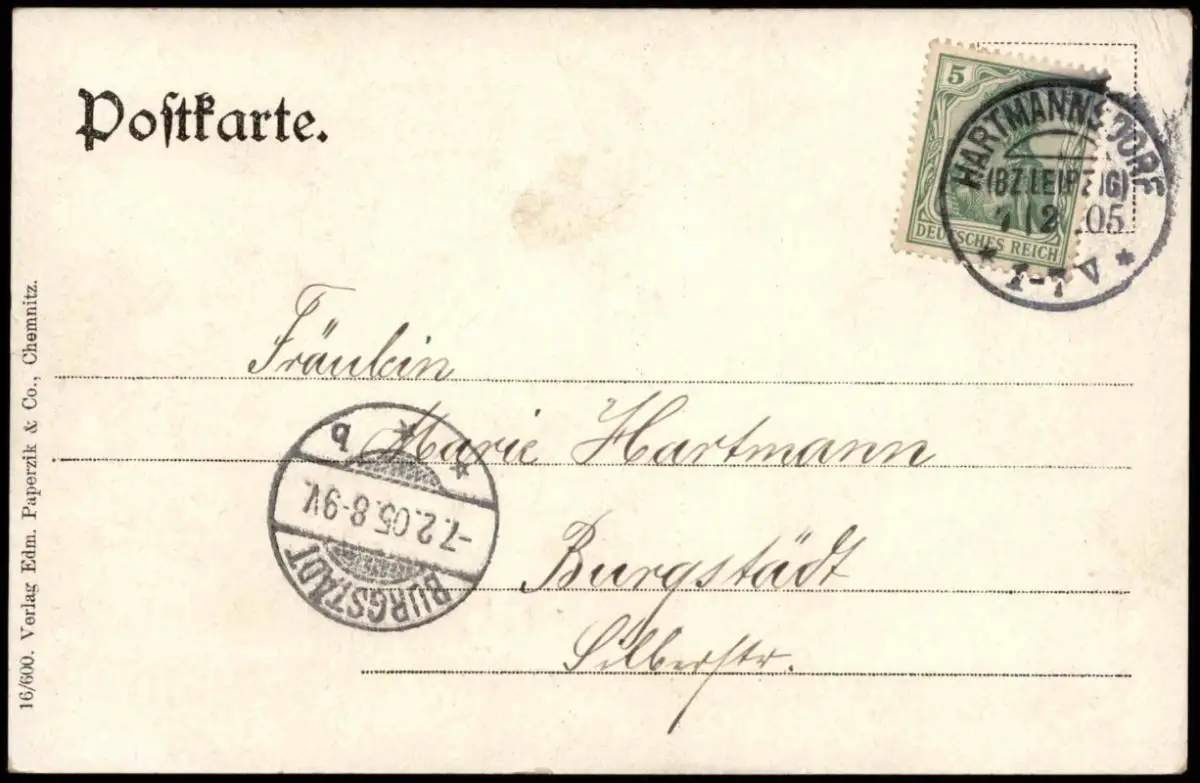 Poſtkarte.
5
DEUTSCHES REICH
HARTMANNSDORF
(BZ. LEIPZIG)
7 2 .05
* 1-7 V *
Fräulein
Marie Hartmann
Burgstädt
Silberstr.
* b *
-7.2.05.8-9V.
BURGSTÄDT
16/600. Verlag Edm. Paperzik & Co., Chemnitz.